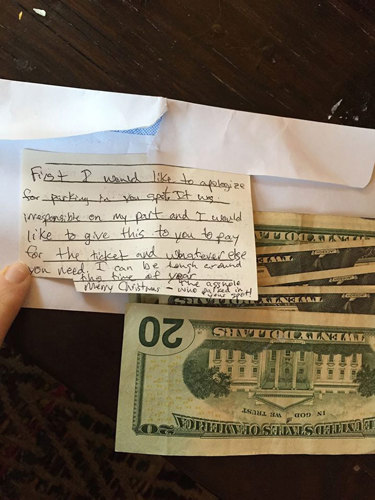 First I would like to apologize
for parking in you spot. It was
irresponsible on my part and I would
like to give this to you to pay
for the ticket and whatever else
you need. I can be tough around
this time of year
Merry Christmas - The asshole
who parked in
your spot!
20
TWENTY DOLLARS
IN GOD WE TRUST
THE UNITED STATES OF AMERICA
20